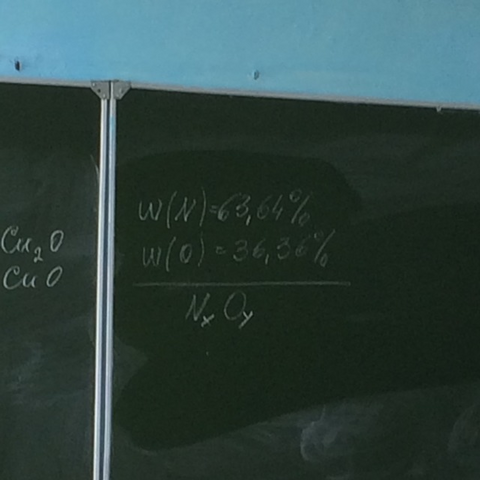 Cu₂O
CuO
w(N)=63,64%
w(O)=36,36%
NₓOᵧ